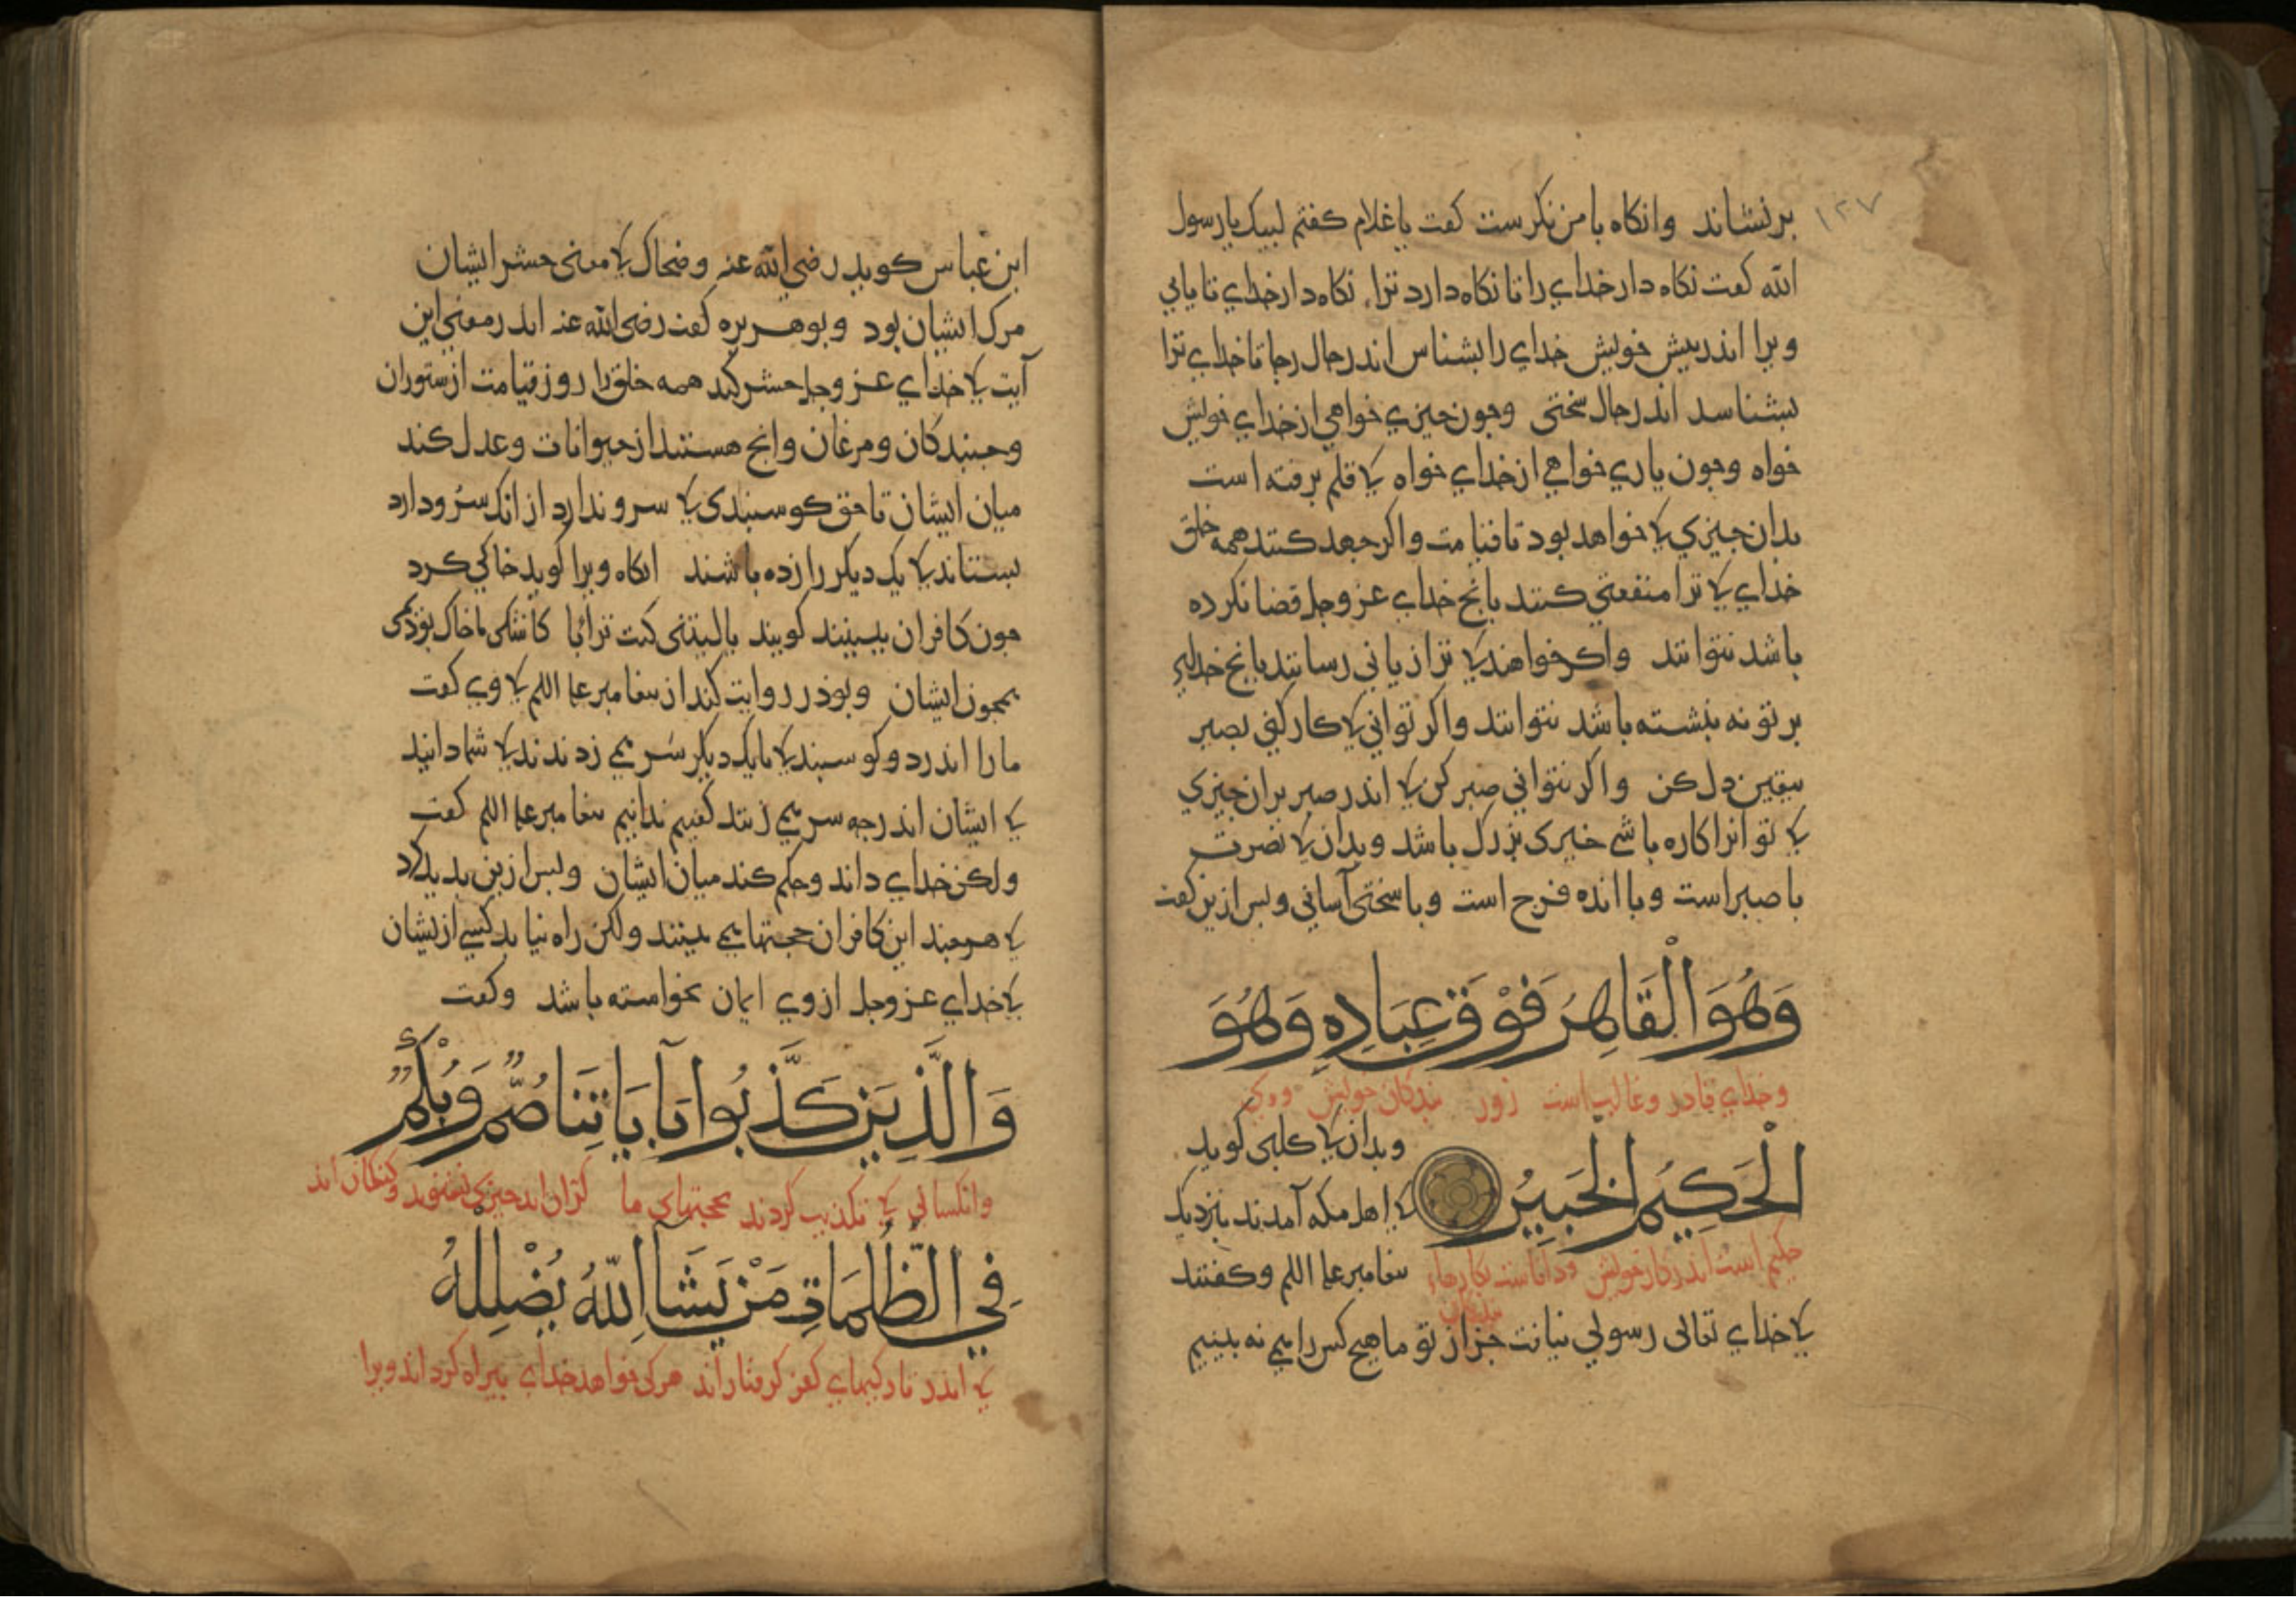 ١٢٧
برنشاند وانکاه بامن نکرست کفت یا غلام کفتم لبیک یا رسول
الله کفت نکاه دار خدایرا تا نکاه دارد ترا نکاه دار خدای تا یابی
ویرا اندر پیش خویش خدای را بشناس اندر حال رجا تا خدای ترا
بشناسد اندر حال سختی وجون جیزی خواهی از خدای خویش
خواه وجون یاری خواهی از خدای خواه کی قلم برفته است
بدان جیزی کی خواهد بود تا قیامت واکر جهد کنند همه خلق
خدای کی ترا منفعتی کنند بانج خدای عز وجل قضا نکرده
باشد نتوانند واکر خواهند کی ترا زیانی رسانند بانج خدای
بر تو نه نبشته باشد نتوانند واکر توانی کی کار کنی بصبر
بیقین دل کن واکر نتوانی صبر کن کی اندر صبر بران جیزی
کی تو انرا کاره باشی خیری بزرک باشد وبدان کی نصرت
با صبر است وبا انده فرج است وبا سختی آسانی وبس ازین کفت
وَهُوَ الْقَاهِرُ فَوْقَ عِبَادِهِ وَهُوَ
وخدای قادر وغالب است زور بندکان خویش ووی
الْحَكِيمُ الْخَبِيرُ
وبدان کی کلبی کوید
کی اهل مکه آمدند بنزدیک
حکیم است اندر کار خویش وداناست بکارهاء
بندکان
بیغامبر علیه السلم وکفتند
کی خدای تعالی رسولی نیافت جز از تو ما هیج کس را می نه بینیم
ابن عباس کوید رضی الله عنه وضحاک کی معنی حشر ایشان
مرک ایشان بود وبوهریره کفت رضی الله عنه اندر معنی این
آیت کی خدای عز وجل حشر کند همه خلق را روز قیامت از ستوران
وجنبندکان ومرغان وانج هستند از حیوانات وعدل کند
میان ایشان تا حق کوسبندی کی سرو ندارد از انک سرو دارد
بستاند کی یک دیکر را زده باشند انکاه ویرا کوید خاکی کرد
جون کافران ببینند کویند یالیتنی کنت ترابا کاشکی ما خاک بوذمی
همجون ایشان وبوذر روایت کند از بیغامبر علیه السلم کی وی کفت
ما را اندر دو کوسبند کی با یک دیکر سر می زدندند کی شما دانید
کی ایشان اندر جه سر می زنند کفتیم ندانیم بیغامبر علیه السلم کفت
ولکن خدای داند وحکم کند میان ایشان وبس ازین بدید کرد
کی هرجند این کافران حجتها می بینند ولکن راه نیابد کسی از یشان
کی خدای عز وجل از وی ایمان نخواسته باشد وکفت
وَالَّذِينَ كَذَّبُوا بِآيَاتِنَا صُمٌّ وَبُكْمٌ
وانکسانی کی تکذیب کردند بحجتهای ما کران اند جیزی نشنوند وکنکان اند
فِي الظُّلُمَاتِ مَنْ يَشَأِ اللّٰهُ يُضْلِلْهُ
کی اندر تاریکیهای کفر کرفتاراند هرکی خواهد خدای بیراه کرداند ویرا